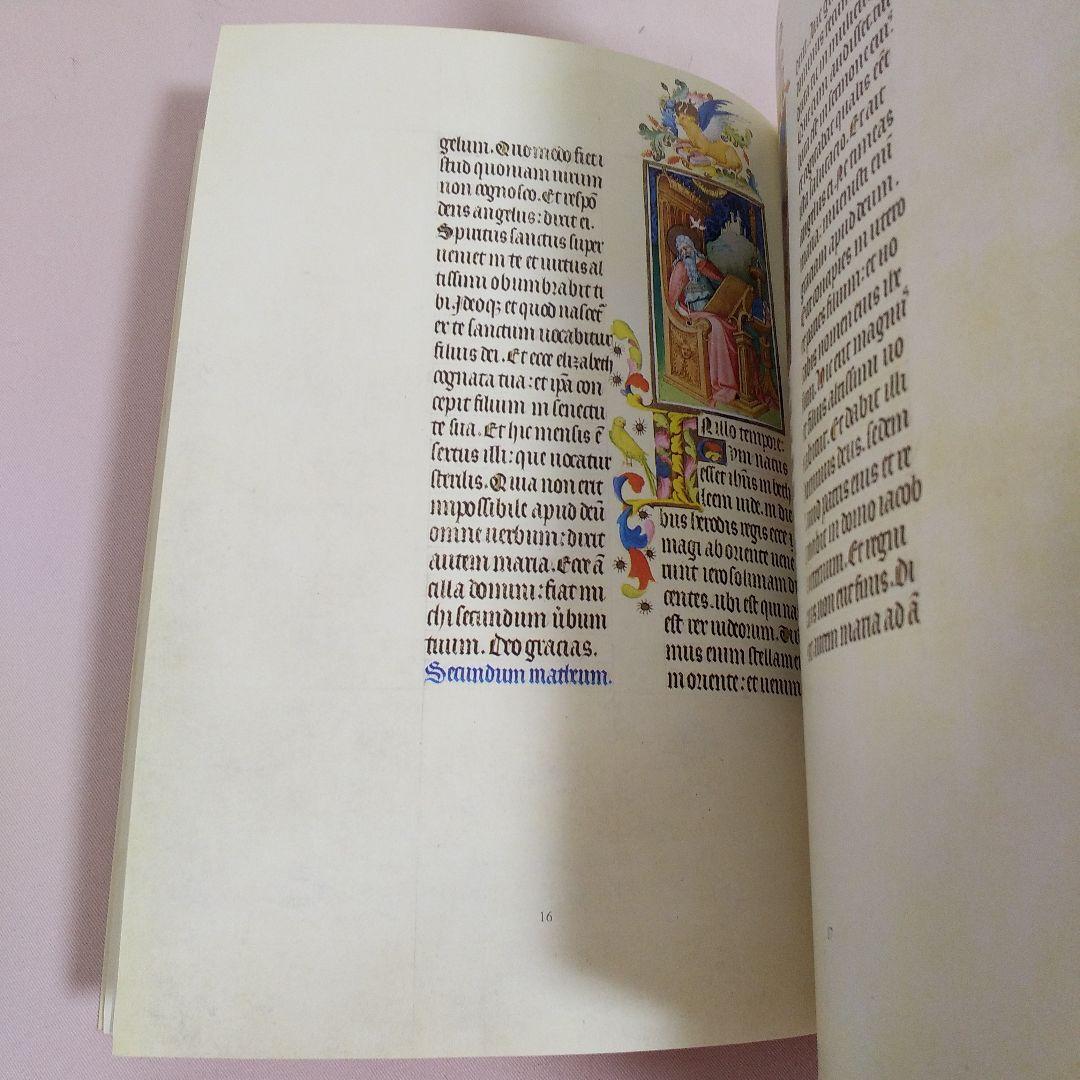 gelum. Quo modo fiet i
stud quoniam uirum
non cognosco. Et respō
dens angelus: dixit ei.
Spiritus sanctus super
ueniet in te et uirtus al
tissimi obumbrabit ti
bi. Ideoq; et quod nascet̄
ex te sanctum uocabitur
filius dei. Et ecce elizabeth
cognata tua: et ip̄a con
cepit filium in senectu
te sua. Et hic mensis ē
sextus illi: que uocatur
sterilis. Quia non erit
impossibile apud deū
omne uerbum: dixit
autem maria. Ecce ā
cilla domini: fiat mi
chi secundum ūbum
tuum. Deo gracias.
Secundum matheum.
IN illo tempore:
Cum natus
esset ihūs in beth
leem iude. in die
bus herodis regis ecce
magi ab oriente uene
runt ierosolimam di
centes. ubi est qui na
est rex iudeorum. Vidi
mus enim stellam ei
in oriente: et uenim
16
audisset
in sermone
qualis
Et ait
angelus ei. Ne timeas
maria: inuenisti eni
apud deum.
concipies in utero
paries filium: et uo
nomen eius
erit magnus
filius altissimi uo
Et dabit illi
deus. sedem
patris eius et re
in domo iacob
Et regni
non erit finis. Di
autem maria ad ā